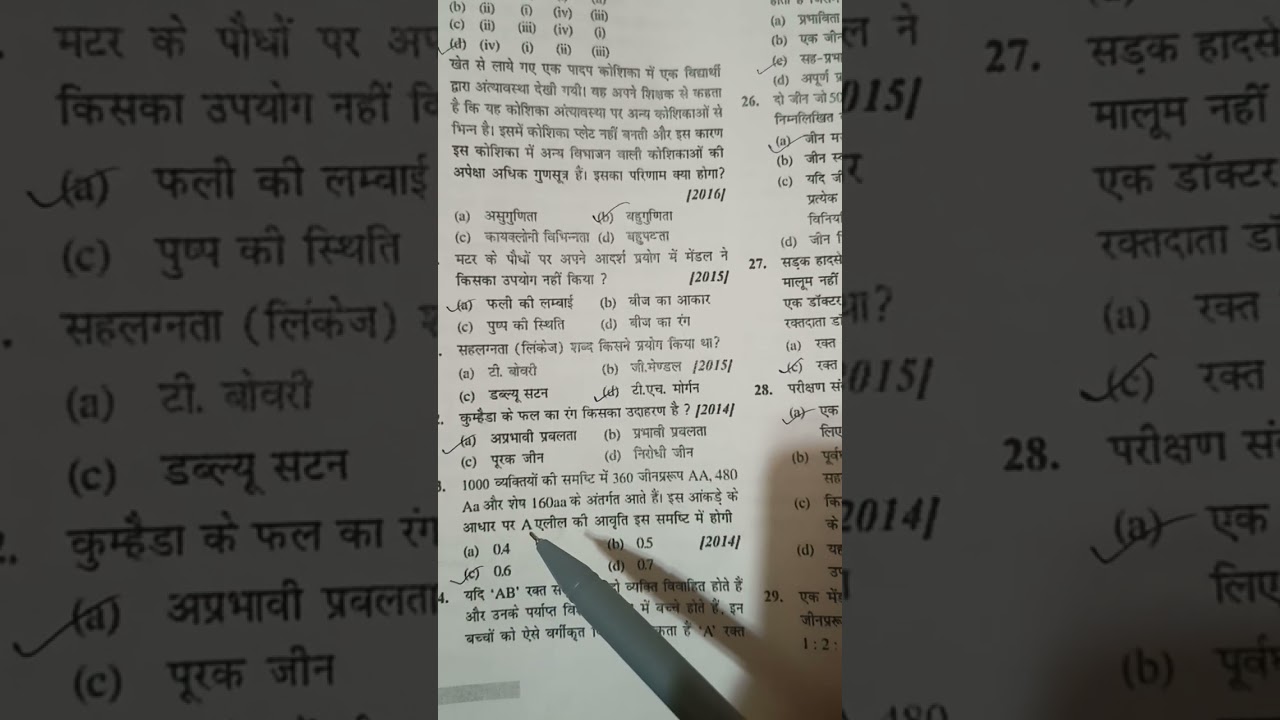 (b) (ii) (i) (iv) (iii)
(c) (ii) (iii) (iv) (i)
(d) (iv) (i) (ii) (iii)
खेत से लाये गए एक पादप कोशिका में एक विद्यार्थी
द्वारा अंत्यावस्था देखी गयी। वह अपने शिक्षक से कहता
है कि यह कोशिका अंत्यावस्था पर अन्य कोशिकाओं से
भिन्न है। इसमें कोशिका प्लेट नहीं बनती और इस कारण
इस कोशिका में अन्य विभाजन वाली कोशिकाओं की
अपेक्षा अधिक गुणसूत्र हैं। इसका परिणाम क्या होगा?
[2016]
(a) असुगुणिता (b) बहुगुणिता
(c) कायक्लोनी विभिन्नता (d) बहुपटता
मटर के पौधों पर अपने आदर्श प्रयोग में मेंडल ने
किसका उपयोग नहीं किया ? [2015]
(a) फली की लम्बाई (b) बीज का आकार
(c) पुष्प की स्थिति (d) बीज का रंग
सहलग्नता (लिंकेज) शब्द किसने प्रयोग किया था?
(a) टी. बोवरी (b) जी.मेण्डल [2015]
(c) डब्ल्यू सटन (d) टी.एच. मोर्गन
कुम्हैडा के फल का रंग किसका उदाहरण है ? [2014]
(a) अप्रभावी प्रबलता (b) प्रभावी प्रबलता
(c) पूरक जीन (d) निरोधी जीन
3. 1000 व्यक्तियों की समष्टि में 360 जीनप्ररूप AA, 480
Aa और शेष 160aa के अंतर्गत आते हैं। इस आंकड़े के
आधार पर A एलील की आवृति इस समष्टि में होगी
(a) 0.4 (b) 0.5 [2014]
(c) 0.6 (d) 0.7
4. यदि 'AB' रक्त दो व्यक्ति विवाहित होते हैं
और उनके पर्याप्त में बच्चे होते हैं, इन
बच्चों को ऐसे वर्गीकृत है 'A' रक्त
(a) प्रभाविता
(b) एक जीन
(c) सह-प्रभा
(d) अपूर्ण प्र
26. दो जीन जो 50
निम्नलिखित
(a) जीन म
(b) जीन स्
(c) यदि जी
प्रत्येक
विनिय
(d) जीन
27. सड़क हादसे
मालूम नहीं
एक डॉक्टर
रक्तदाता डॉ
(a) रक्त
(c) रक्त
28. परीक्षण सं
(a) एक
लिए
(b) पूर्व
सह
(c) कि
के
(d) य
29. एक में
जीनप्ररू
1 : 2 :